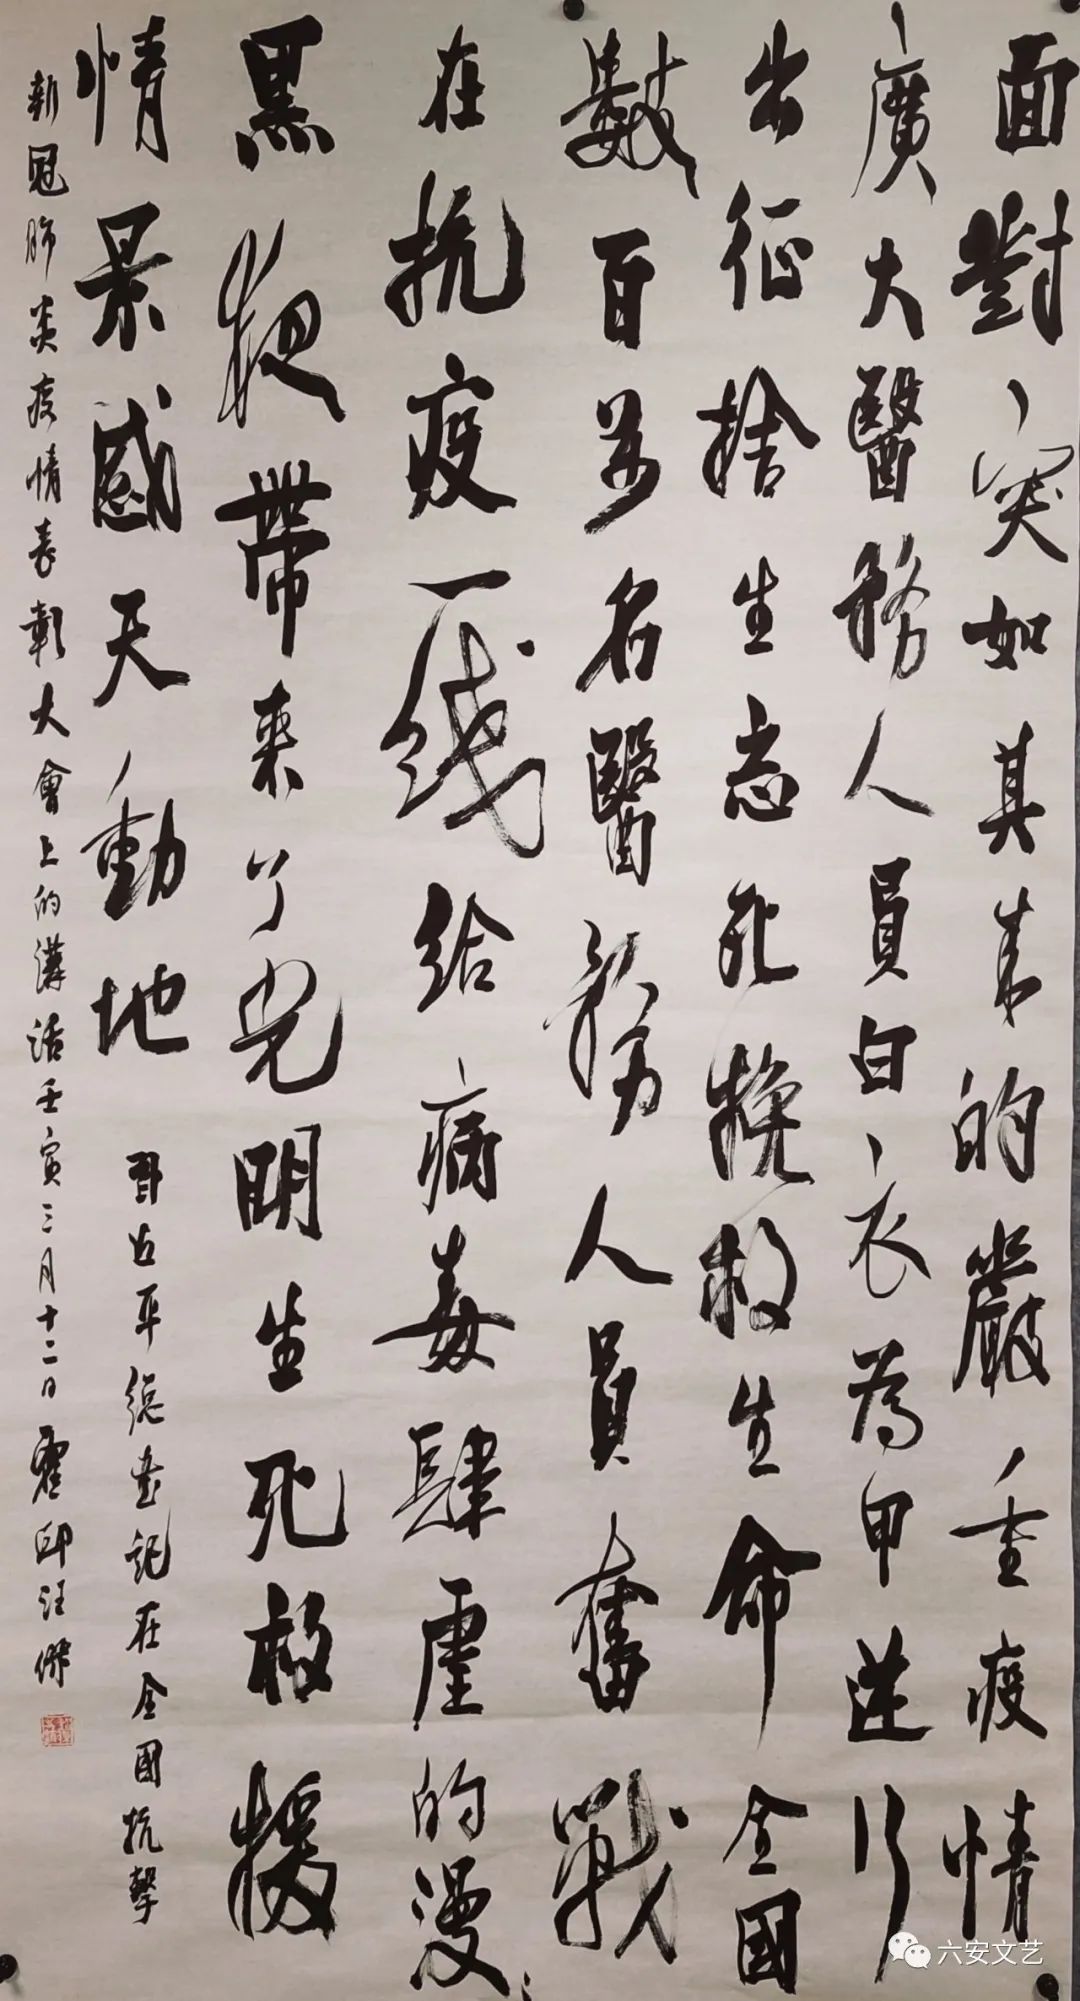 面對突如其来的嚴重疫情
廣大醫務人員白衣為甲逆行
出征捨生忘死挽救生命全國
數百万名醫務人員奮戰
在抗疫一线給病毒肆虐的漫
黑夜帶来了光明生死救援
情景感天動地
習近平總書記在全國抗擊
新冠肺炎疫情表彰大會上的講話壬寅三月十二日霍邱汪傑
六安文艺